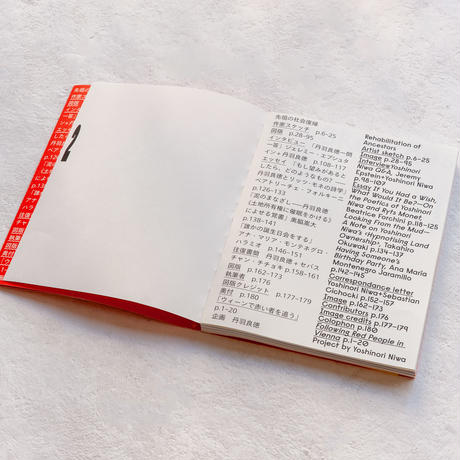 先祖の
作家ス
図版
インタ
一答」
シュタ
エッセ
したら
丹羽良
ベアト
p.12
「泥の
《土地
によ
p.13
「誰か
アナ
ハラ
往復
チャ
図版
執筆
図版
奥付
「ウィ
p.1-
2
先祖の社会復帰
作家スケッチ p.6-25
図版 p.28-95
インタビュー「丹羽良徳一問
一答」ジェレミー・エプシュタ
イン+丹羽良徳 p.108-117
エッセイ「もし望みがあると
したら、どのようなもの?――
丹羽良徳とリッツ・モネの詩学」
ベアトリーチェ・フォルキーニ
p.126-133
「泥のまなざし――丹羽良徳
《土地所有権に催眠をかける》
による覚書」奥脇嵩大
p.138-141
「誰かの誕生日会をする」
アナ・マリア・モンテネグロ・
ハラミオ p.146-151
往復書簡 丹羽良徳+セバス
チャン・チチョキ p.158-161
図版 p.162-173
執筆者 p.176
図版クレジット p.177-179
奥付 p.180
「ウィーンで赤い人を追う」
p.1-20
企画 丹羽良徳
Rehabilitation of
Ancestors
Artist sketch p.6-25
Image p.28-95
InterviewYoshinori
Niwa Q&A, Jeremy
Epstein+Yoshinori Niwa
p.98-107
Essay If You Had a Wish,
What Would It Be?–On
the Poetics of Yoshinori
Niwa and Ryts Monet,
Beatrice Forchini p.118-125
Looking From the Mud–
A Note on Yoshinori
Niwa's <Hypnotising Land
Ownership>, Takahiro
Okuwaki p.134-137
Having Someone's
Birthday Party, Ana Maria
Montenegro Jaramillo
p.142-145
Correspondance letter
Yoshinori Niwa+Sebastian
Cichocki p.152-157
Image p.162-173
Contributors p.176
Image credits p.177-179
Colophon p.180
Following Red People in
Vienna p.1-20
Project by Yoshinori Niwa